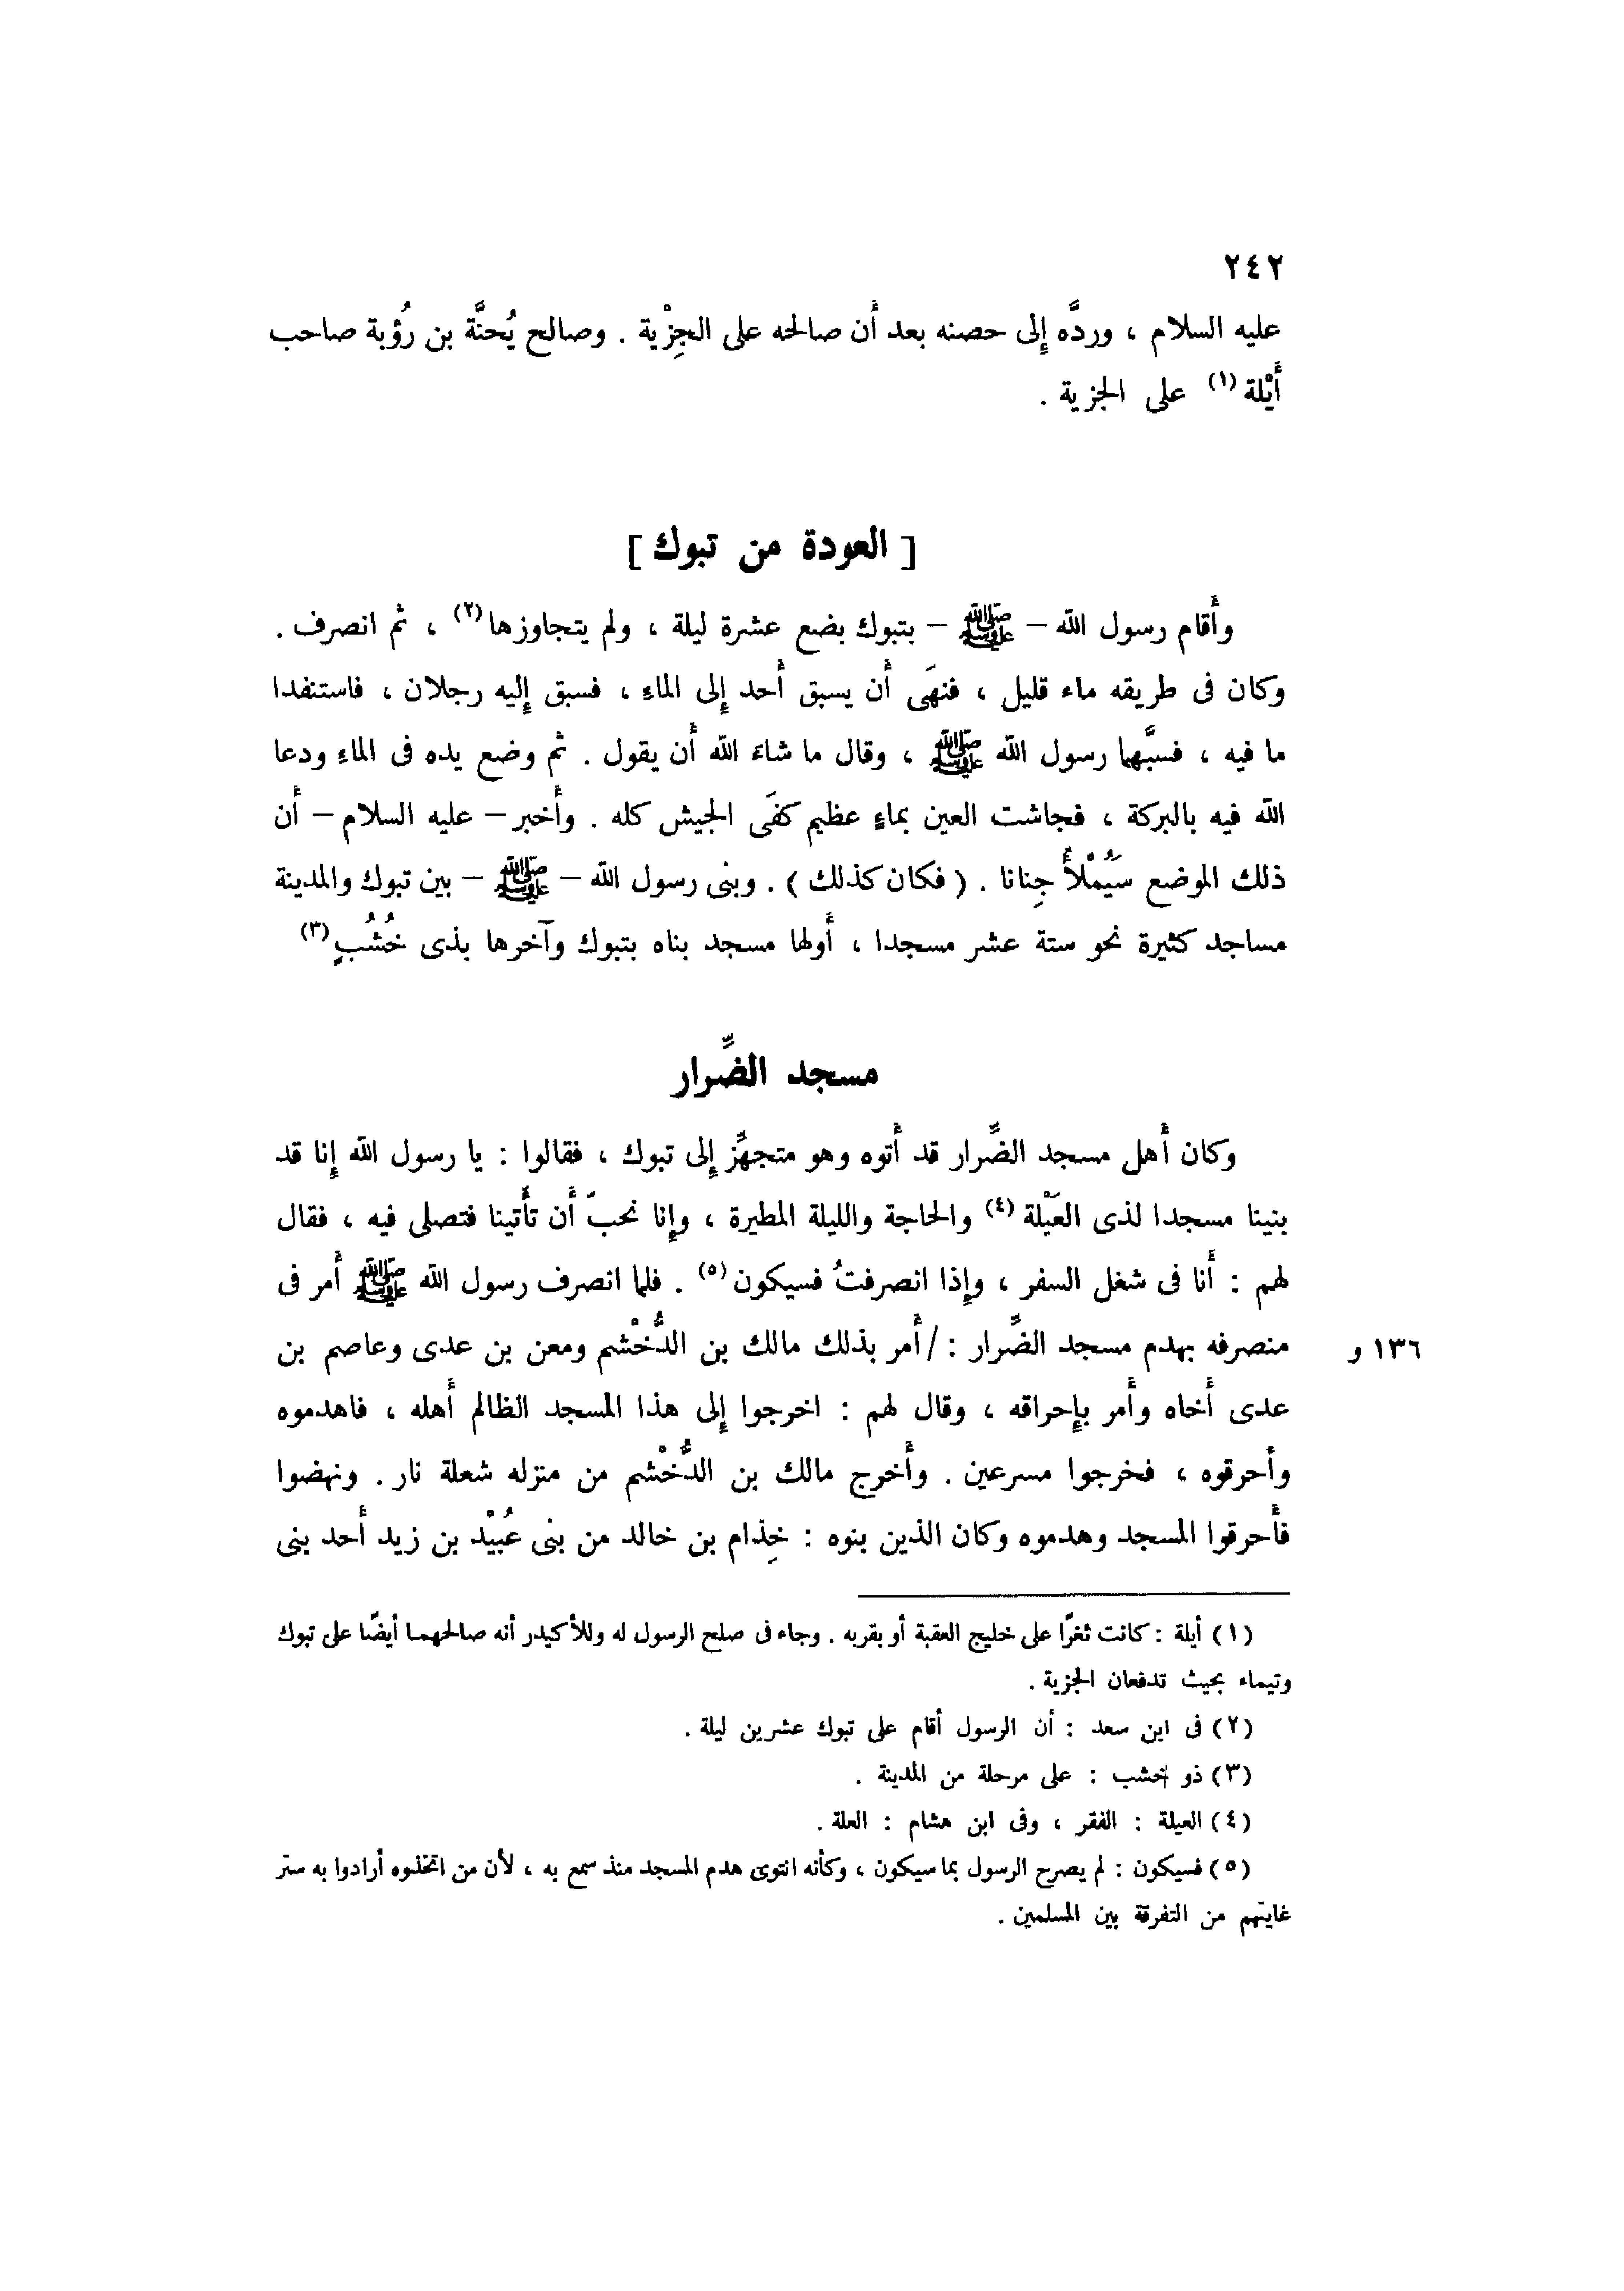 ٢٤٢
عليه السلام ، وردَّه إلى حصنه بعد أن صالحه على الجِزْية . وصالح يُحنَّة بن رُؤبة صاحب
أَيْلة (١) على الجزية .
[ العودة من تبوك ]
وأقام رسول الله – ﷺ – بتبوك بضع عشرة ليلة ، ولم يتجاوزها (٢) ، ثم انصرف .
وكان فى طريقه ماء قليل ، فنهَى أن يسبق أحد إلى الماءِ ، فسبق إليه رجلان ، فاستنفدا
ما فيه ، فسبَّهما رسول الله ﷺ ، وقال ما شاءَ الله أن يقول . ثم وضع يده فى الماءِ ودعا
الله فيه بالبركة ، فجاشت العين بماءٍ عظيم كفَى الجيش كله . وأخبر – عليه السلام – أن
ذلك الموضع سَيُمْلأُ جِنانا . ( فكان كذلك ) . وبنى رسول الله – ﷺ – بين تبوك والمدينة
مساجد كثيرة نحو ستة عشر مسجدا ، أولها مسجد بناه بتبوك وآخرها بذى خُشُبٍ (٣)
مسجد الضِّرار
وكان أهل مسجد الضِّرار قد أتوه وهو متجهِّز إلى تبوك ، فقالوا : يا رسول الله إنا قد
بنينا مسجدا لذى العَيْلة (٤) والحاجة والليلة المطيرة ، وإنا نحبّ أن تأتينا فتصلى فيه ، فقال
لهم : أنا فى شغل السفر ، وإذا انصرفتُ فسيكون (٥) . فلما انصرف رسول الله ﷺ أمر فى
منصرفه بهدم مسجد الضِّرار : / أمر بذلك مالك بن الدُّخْشم ومعن بن عدى وعاصم بن
١٣٦ و
عدى أخاه وأمر بإحراقه ، وقال لهم : اخرجوا إلى هذا المسجد الظالم أهله ، فاهدموه
وأحرقوه ، فخرجوا مسرعين . وأخرج مالك بن الدُّخْشم من منزله شعلة نار . ونهضوا
فأحرقوا المسجد وهدموه وكان الذين بنوه : خِذام بن خالد من بنى عُبيْد بن زيد أحد بنى
(١) أيلة : كانت ثغرًا على خليج العقبة أو بقربه . وجاء فى صلح الرسول له وللأكيدر أنه صالحهما أيضًا على تبوك
وتيماء بحيث تدفعان الجزية .
(٢) فى ابن سعد : أن الرسول أقام على تبوك عشرين ليلة .
(٣) ذو خشب : على مرحلة من المدينة .
(٤) العيلة : الفقر ، وفى ابن هشام : العلة .
(٥) فسيكون : لم يصرح الرسول بما سيكون ، وكأنه انتوى هدم المسجد منذ سمع به ، لأن من اتخذوه أرادوا به ستر
غايتهم من التفرقة بين المسلمين .